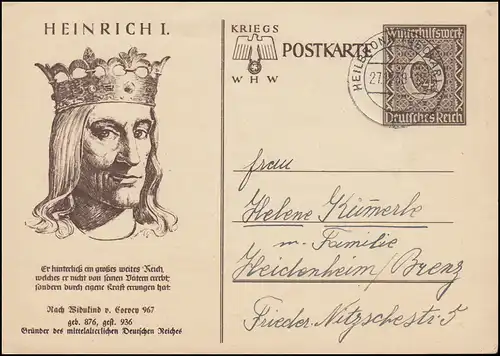 HEINRICH I.
KRIEGS
WHW
POSTKARTE
Winterhilfswerk
6
Deutsches Reich
HEILBRONN (NECKAR)
27.
Frau
Helene Kümerle
m. Familie
Heidenheim/Brenz
Frieder. Nitzschestr. 5
Er hinterließ ein großes weites Reich,
welches er nicht von seinen Vätern ererbt,
sondern durch eigene Kraft errungen hat
Nach Widukind v. Corvey 967
geb. 876, gest. 936
Gründer des mittelalterlichen Deutschen Reiches